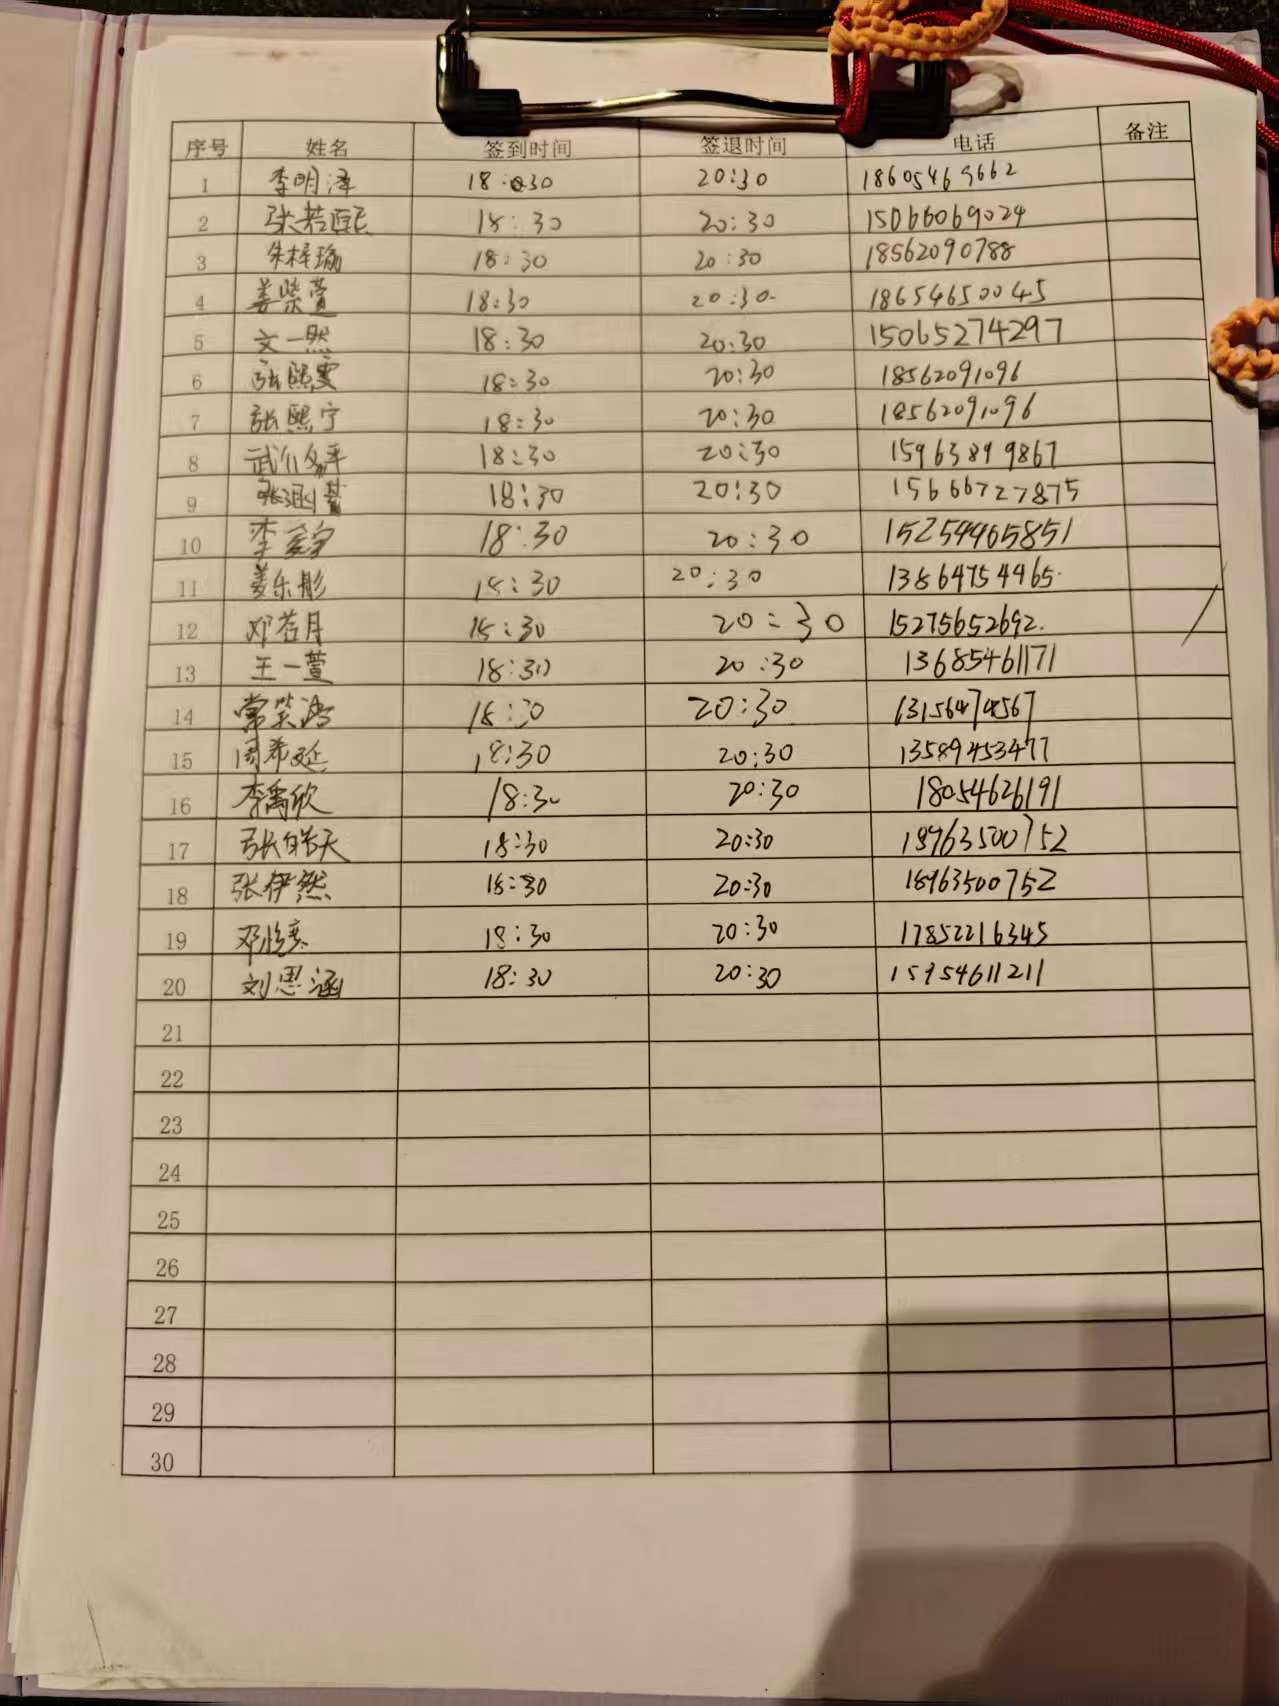 序号 姓名 签到时间 签退时间 电话 备注
1 李明泽 18:30 20:30 18605469662
2 张若熙 18:30 20:30 15066069024
3 朱梓瑜 18:30 20:30 18562090788
4 姜紫萱 18:30 20:30 18654650045
5 文一然 18:30 20:30 15065274297
6 张熙雯 18:30 20:30 18562091096
7 张熙宁 18:30 20:30 18562091096
8 18:30 20:30 15963899867
9 张涵萱 18:30 20:30 15666727875
10 18:30 20:30 15254465851
11 姜乐彤 18:30 20:30 13864754465
12 邓若月 18:30 20:30 15275652692
13 王一萱 18:30 20:30 13685461171
14 18:30 20:30 63156474567
15 周希延 18:30 20:30 13589453477
16 李禹欣 18:30 20:30 18054626191
17 张皓天 18:30 20:30 18963500752
18 张伊然 18:30 20:30 18963500752
19 18:30 20:30 17852216345
20 刘思涵 18:30 20:30 15954611211
21
22
23
24
25
26
27
28
29
30